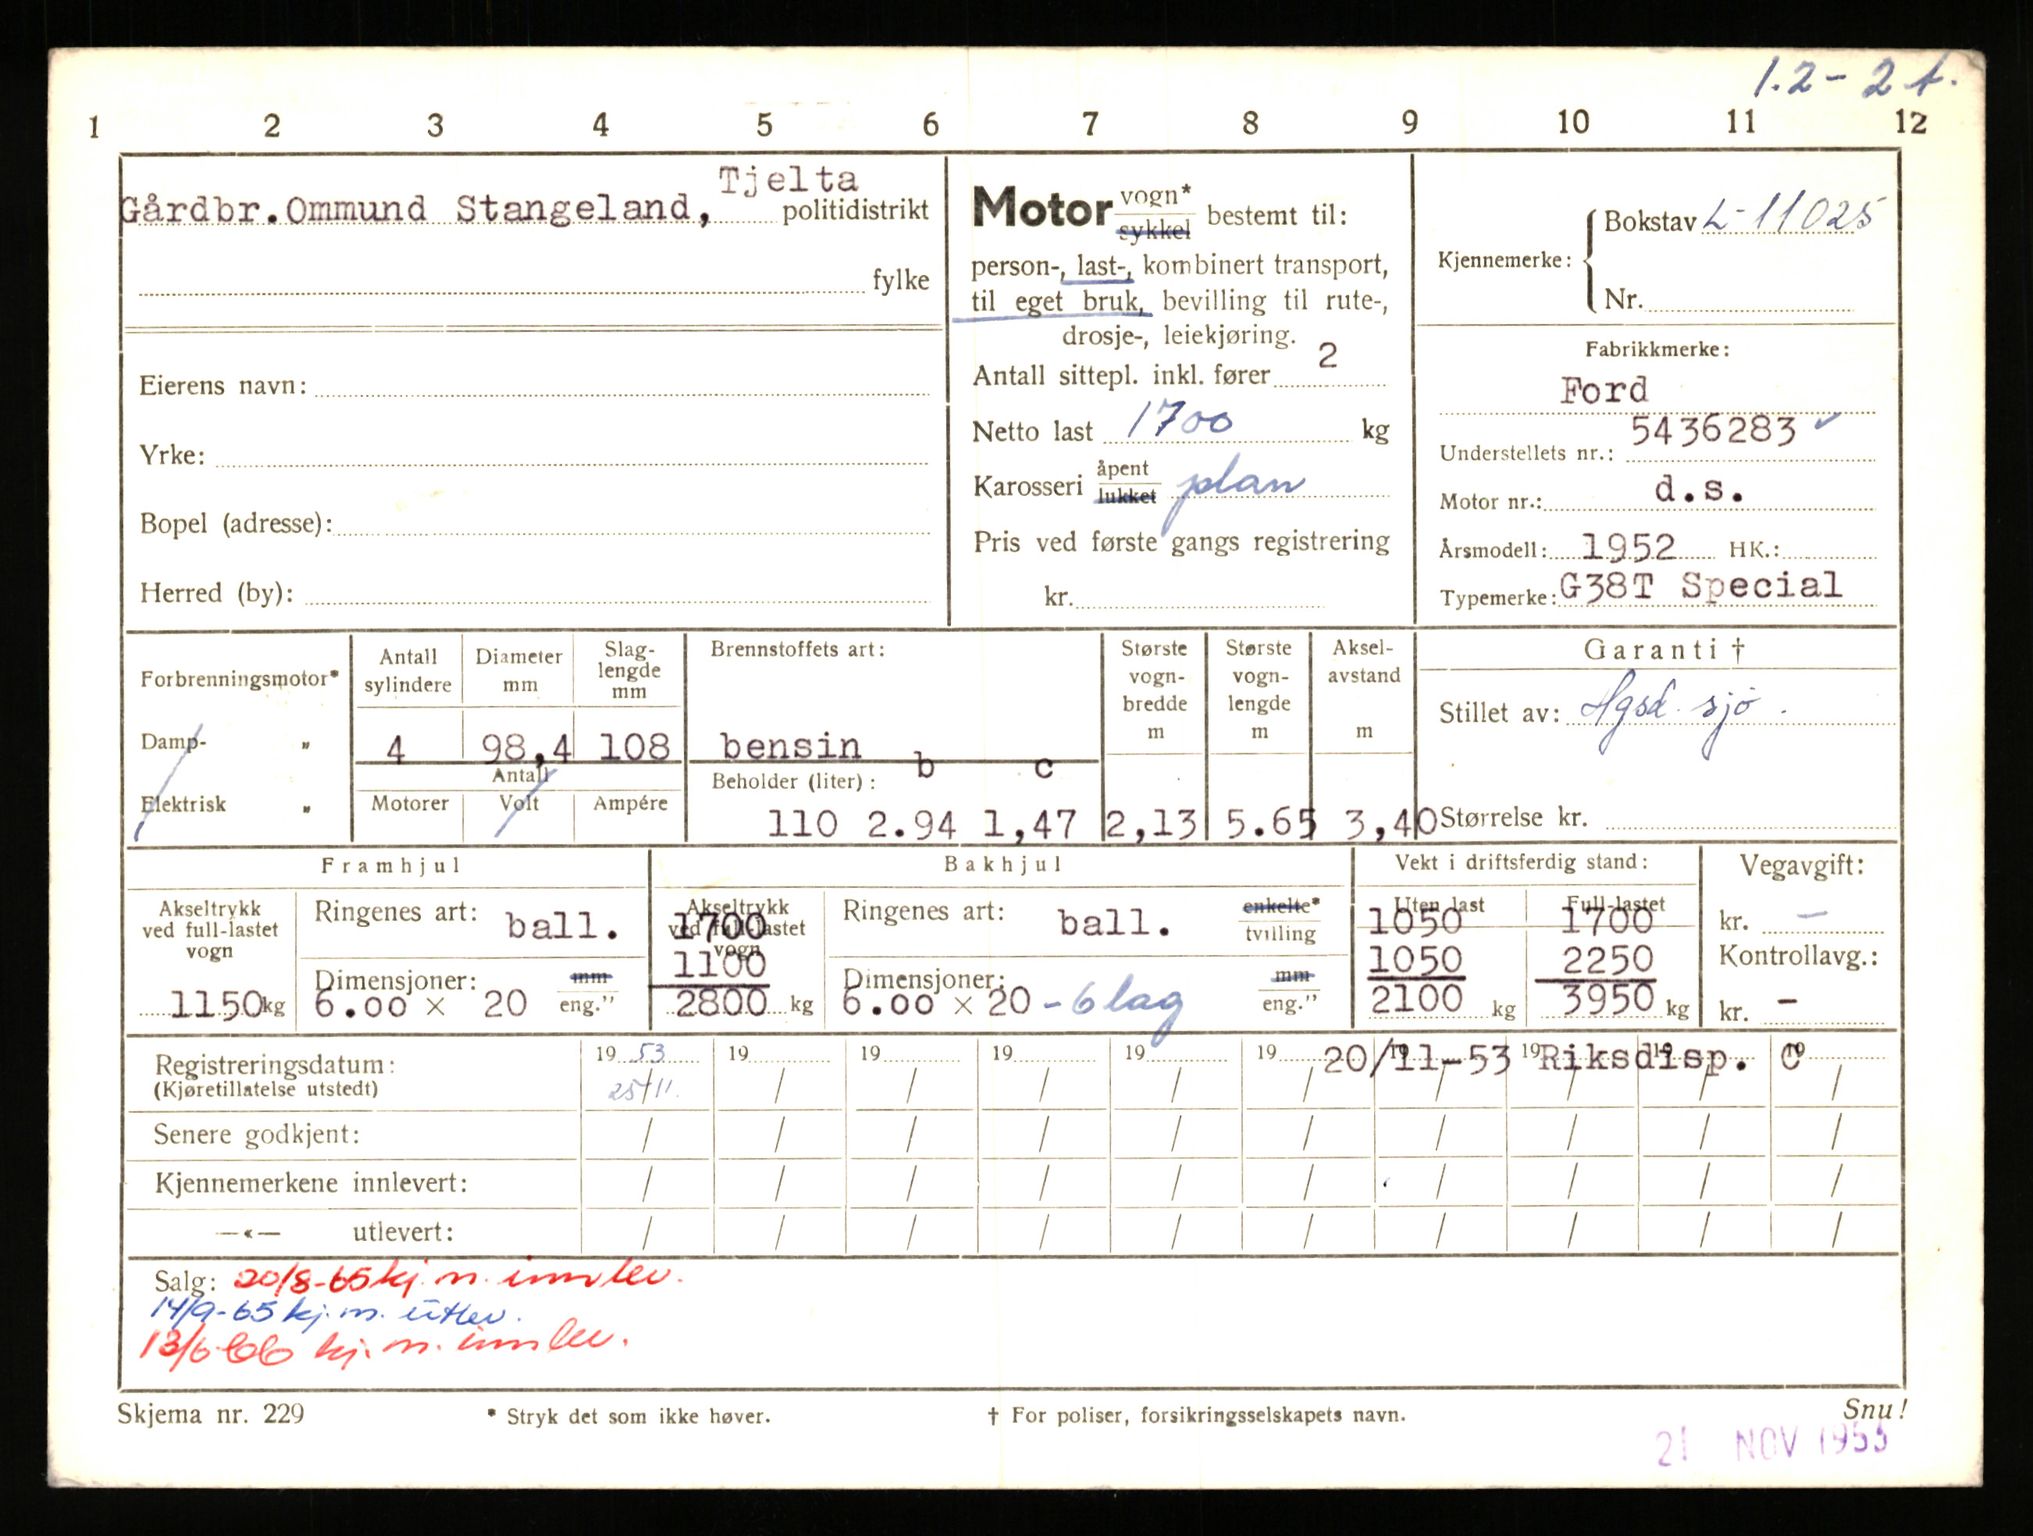 1.2 - 2 t.
1 2 3 4 5 6 7 8 9 10 11 12
Tjelta
Gårdbr. Ommund Stangeland, politidistrikt
fylke
Eierens navn:
Yrke:
Bopel (adresse):
Herred (by):
Motor vogn* sykkel bestemt til:
person-, last-, kombinert transport,
til eget bruk, bevilling til rute-,
drosje-, leiekjøring.
Antall sittepl. inkl. fører 2
Netto last 1700 kg
Karosseri åpent lukket plan
Pris ved første gangs registrering
kr.
Kjennemerke: Bokstav L-11025
Nr.
Fabrikkmerke:
Ford
Understellets nr.: 5436283
Motor nr.: d.s.
Årsmodell: 1952 HK.:
Typemerke: G38T Special
Forbrenningsmotor*
Damp- "
Elektrisk "
Antall sylindere
4
Diameter mm
98,4
Slaglengde mm
108
Antall
Motorer Volt Ampére
Brennstoffets art:
bensin
Beholder (liter): b c
110 2.94 1,47
Største vognbredde m
2,13
Største vognlengde m
5.65
Akselavstand m
3,40
Garanti †
Stillet av: Hgsd. sjø.
Størrelse kr.
Framhjul
Akseltrykk ved full-lastet vogn
1150 kg
Ringenes art: ball.
Dimensjoner: mm
6.00 x 20 eng."
Bakhjul
Akseltrykk ved full-lastet vogn
1700
1100
2800 kg
Ringenes art: ball. enkelte* tvilling
Dimensjoner: mm
6.00 x 20 - 6 lag eng."
Vekt i driftsferdig stand:
Uten last Full-lastet
1050 1700
1050 2250
2100 kg 3950 kg
Vegavgift:
kr. –
Kontrollavg.:
kr. –
Registreringsdatum: 19 53 19 19 19 19 19 20/11-53 19 Riksdisp. C 19
(Kjøretillatelse utstedt) 25/11. / / / / / / / / /
Senere godkjent: / / / / / / / / / /
Kjennemerkene innlevert: / / / / / / / / / /
—«— utlevert: / / / / / / / / / /
Salg: 20/8-65 kj. m. innlev.
14/9-65 kj. m. utlev.
13/6-66 kj. m. innlev.
Skjema nr. 229 * Stryk det som ikke høver. † For poliser, forsikringsselskapets navn. Snu!
21 NOV 1953